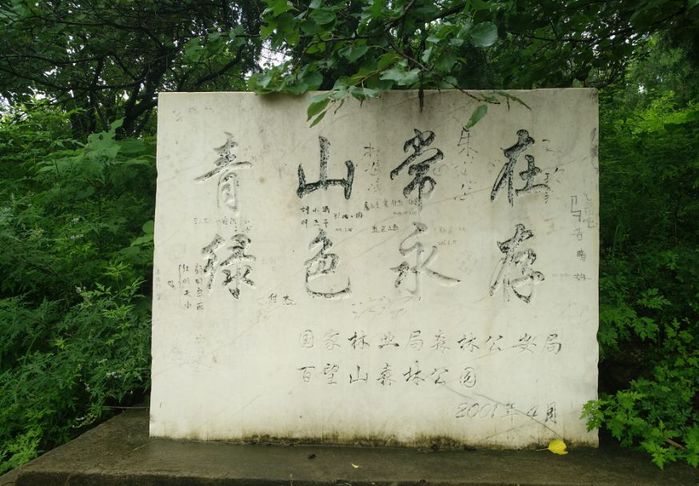 青山常在
绿色永存
国家林业局森林公安局
百望山森林公园
2001年4月